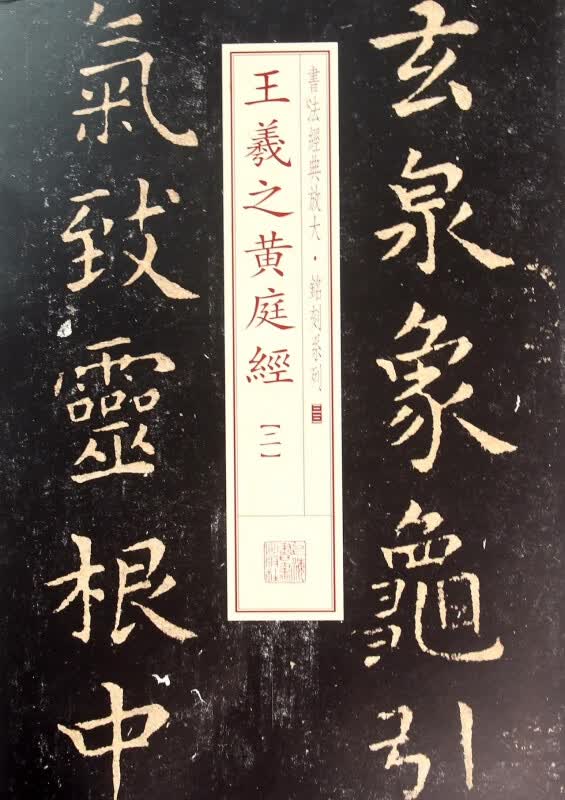 玄泉象龜引
書法經典放大·銘刻系列
王羲之黄庭經
【二】
氣致靈根中